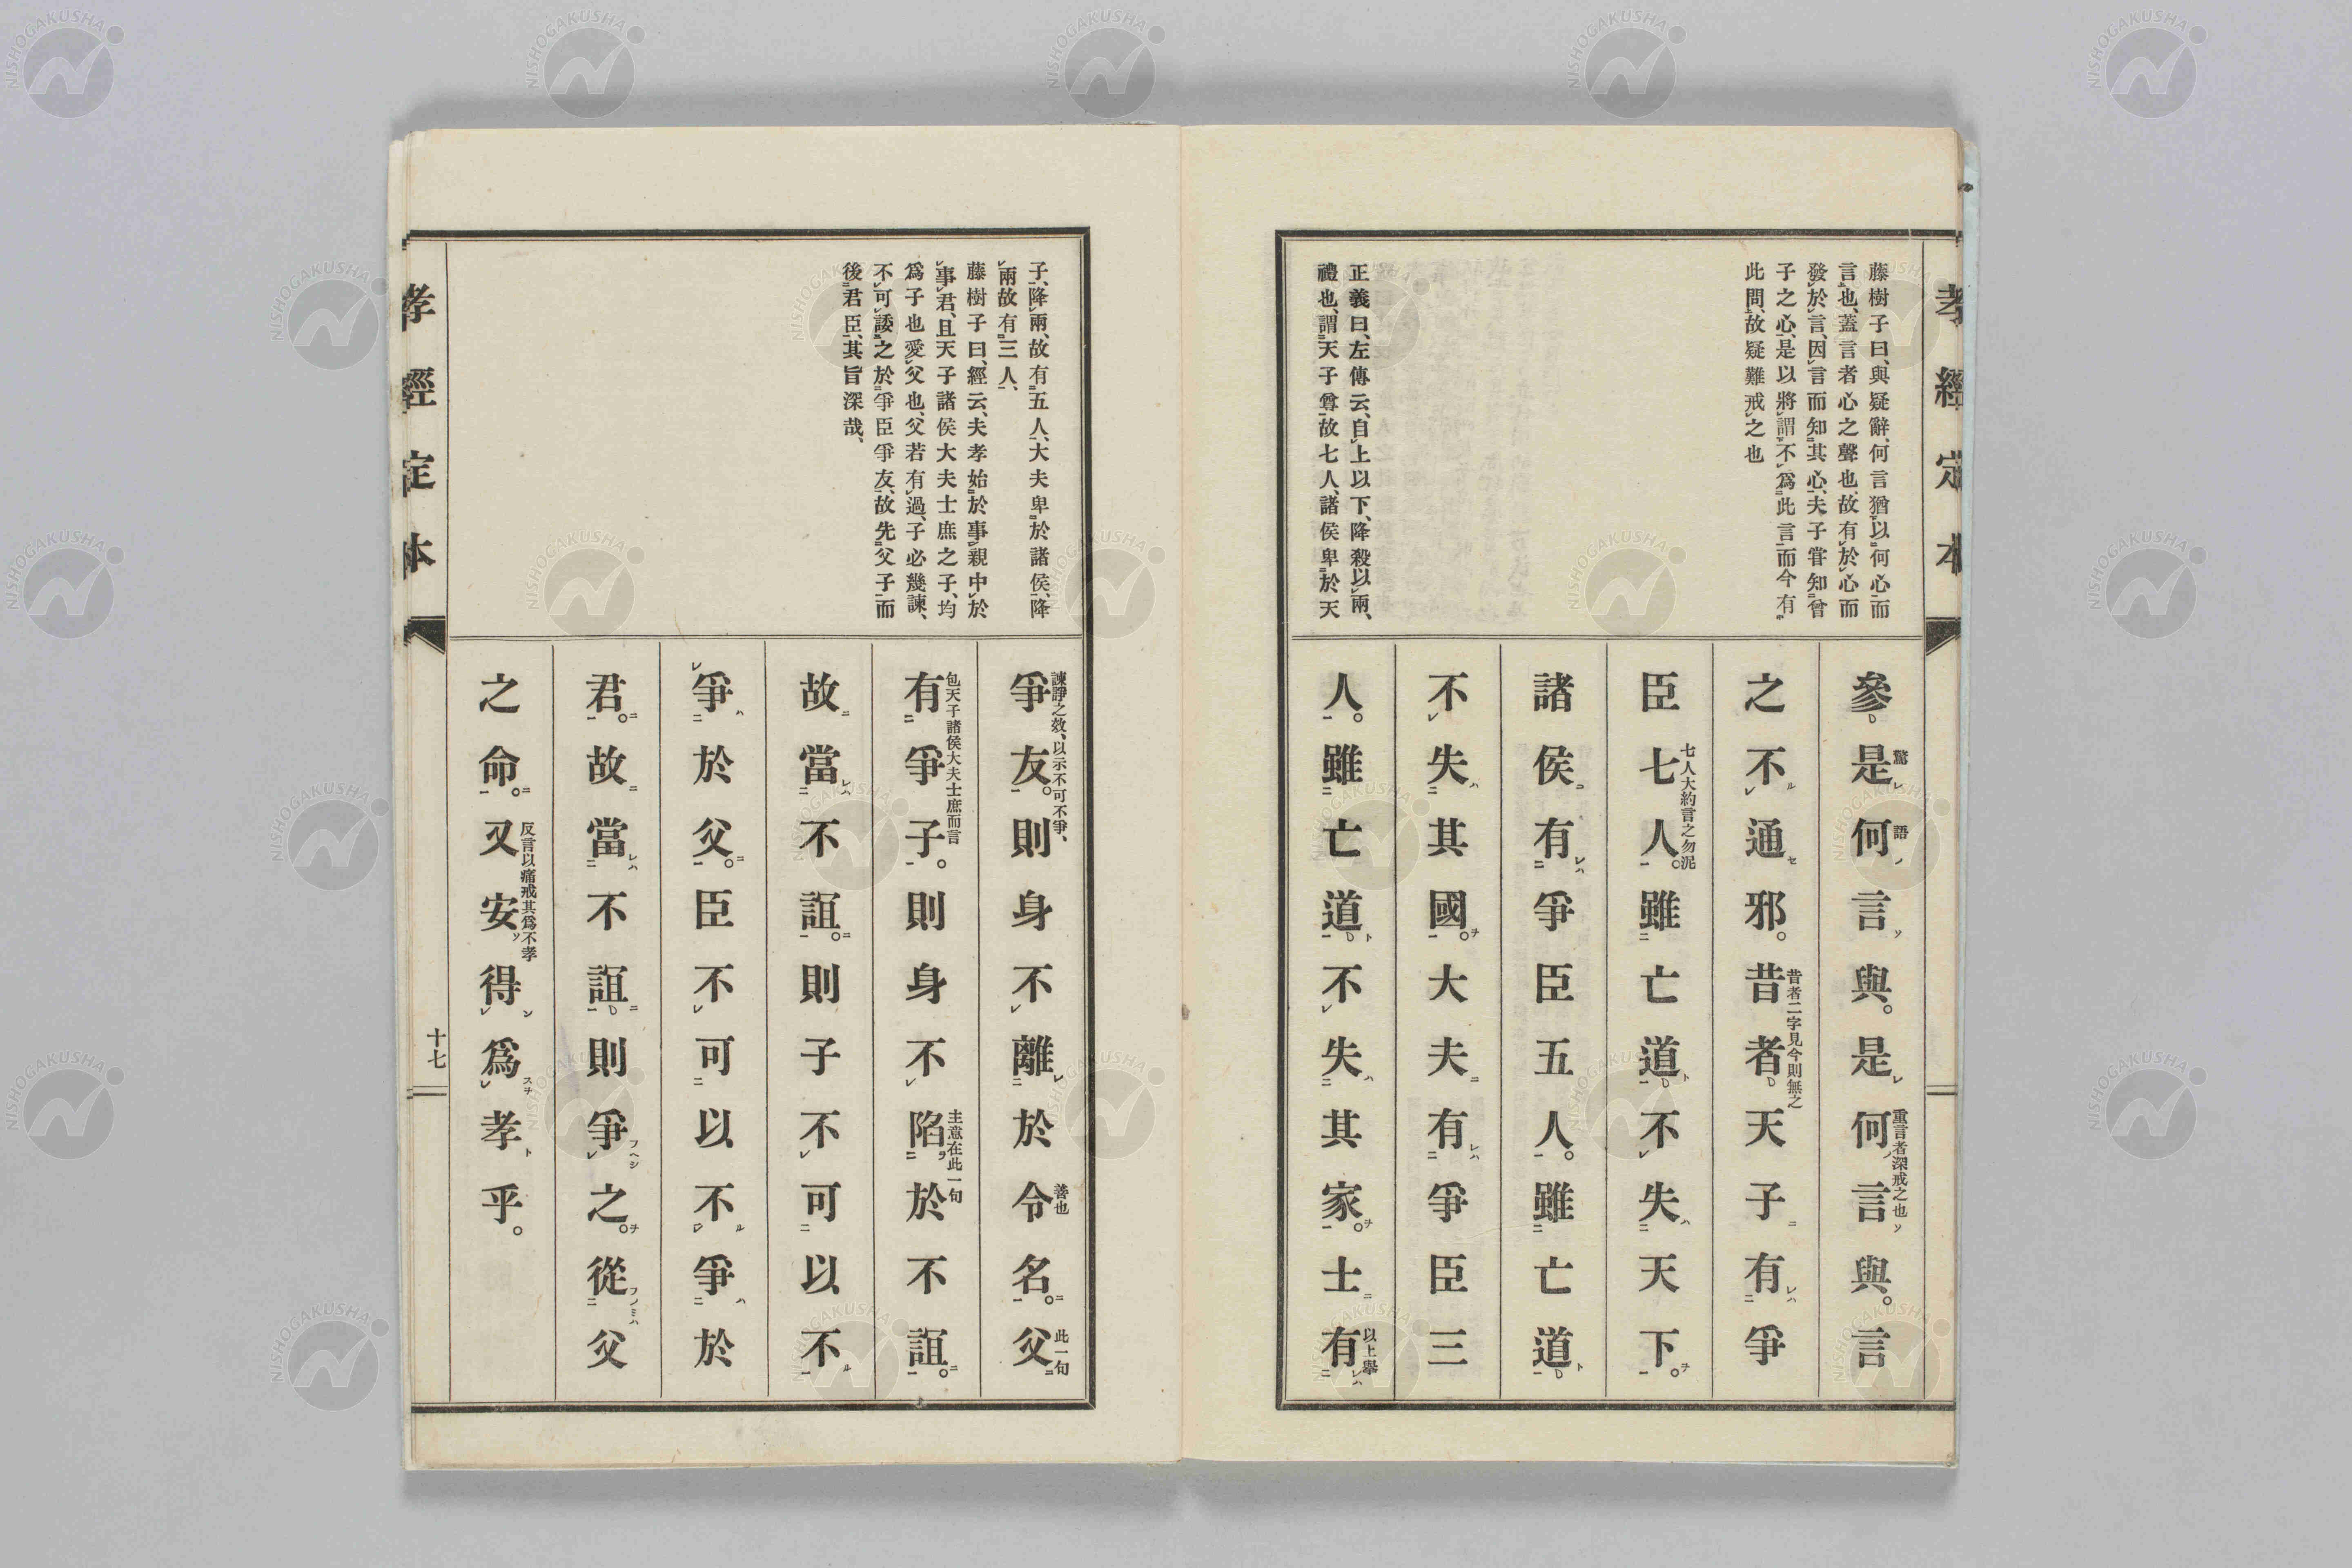 孝經定本
藤樹子曰、與疑辭、何言猶以何心而
言也、蓋言者心之聲也、故有於心而
發於言、因言而知其心、夫子甞知曾
子之心、是以將謂不爲此言、而今有
此問、故疑難戒之也
正義曰、左傳云、自上以下、降殺以兩、
禮也、謂天子尊故七人、諸侯卑於天
參是何言與。是何言與。言
驚語
重言者深戒之也
之不通邪。昔者天子有爭
昔者二字見今則無之
臣七人。雖亡道不失天下。
七人大約言之勿泥
諸侯有爭臣五人。雖亡道
不失其國。大夫有爭臣三
人。雖亡道不失其家。士有
以上舉
子、降兩、故有五人、大夫卑於諸侯、降
兩故有三人、
藤樹子曰、經云、夫孝始於事親中於
事君、且天子諸侯大夫士庶之子、均
爲子也愛父也、父若有過、子必幾諫、
不可諉之於爭臣爭友、故先父子而
後君臣、其旨深哉、
爭友。則身不離於令名。父
諫諍之效、以示不可不爭、
善也
此一句
有爭子。則身不陷於不誼。
包天子諸侯大夫士庶而言
主意在此一句
故當不誼。則子不可以不
爭於父。臣不可以不爭於
君。故當不誼則爭之。從父
之命。又安得爲孝乎。
反言以痛戒其爲不孝
孝經定本
十七
NISHOGAKUSHA